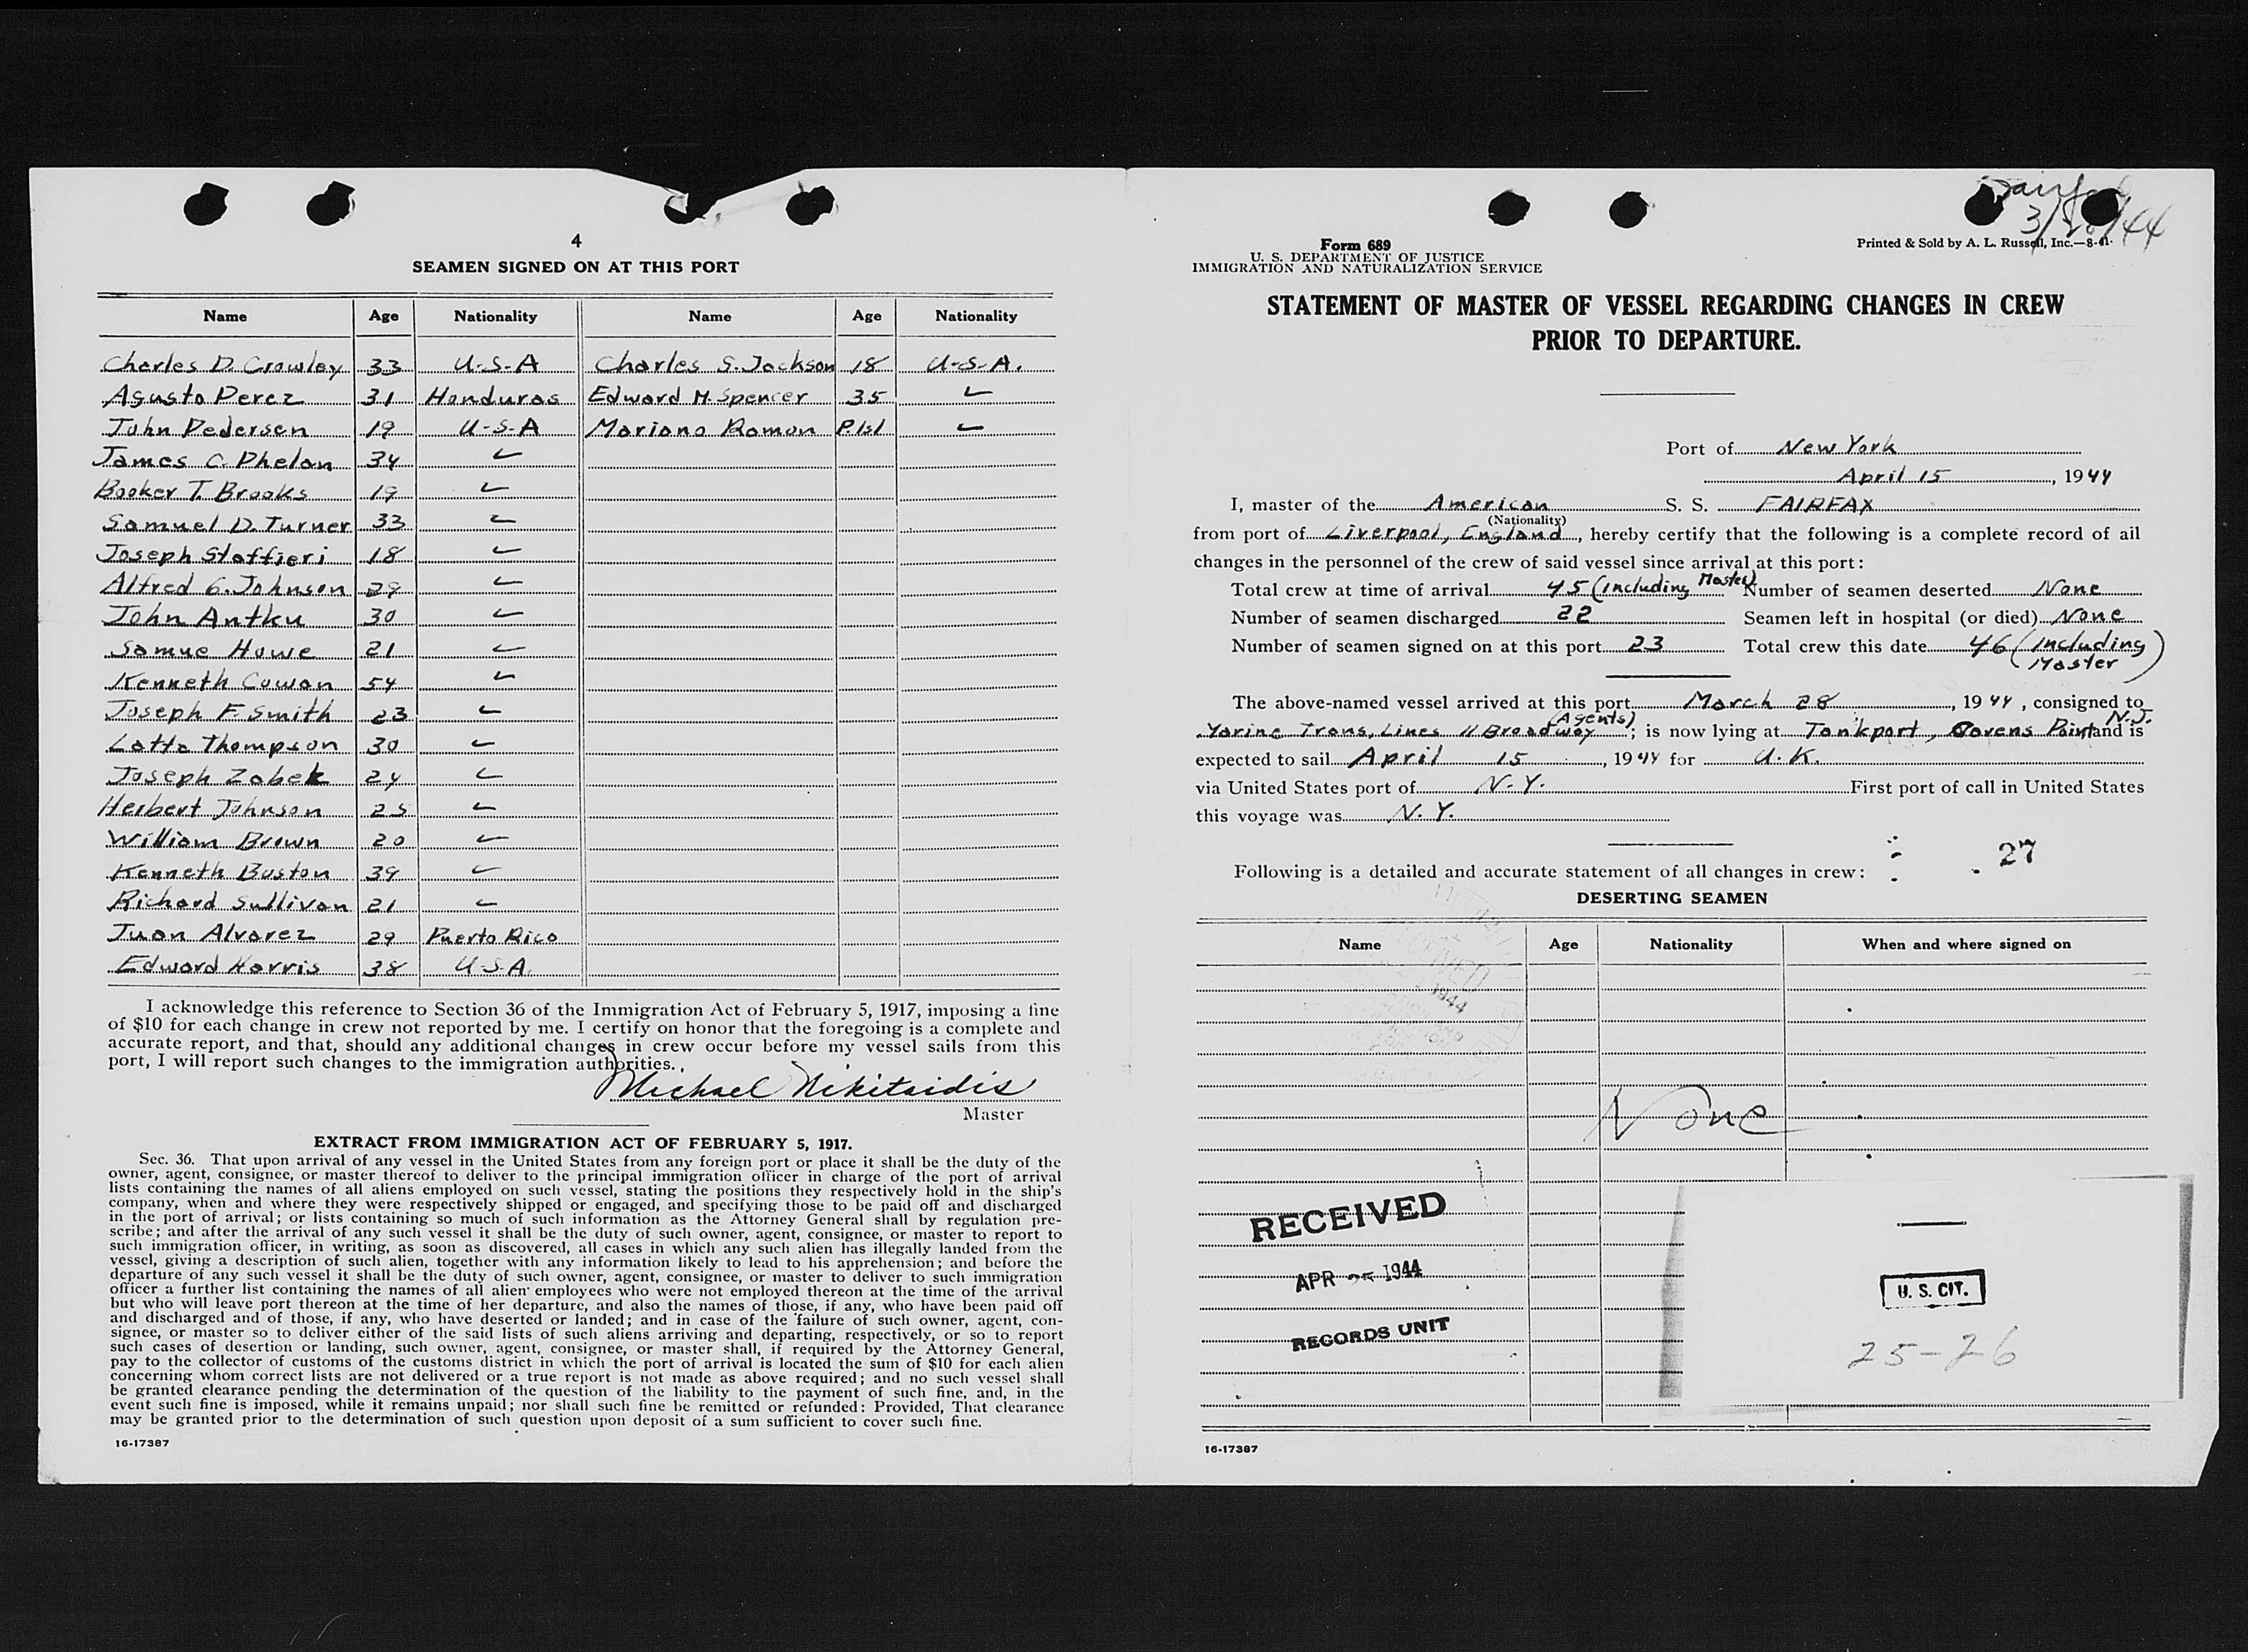 4
SEAMEN SIGNED ON AT THIS PORT
Name Age Nationality Name Age Nationality
Charles D. Crowley 33 U-S-A Charles S. Jackson 18 U-S-A.
Agusto Perez 31 Honduras Edward H. Spencer 35 ✓
John Pedersen 19 U-S-A Mariano Ramon P.Isl ✓
James C. Phelan 34 ✓
Booker T. Brooks 19 ✓
Samuel D. Turner 33 ✓
Joseph Staffieri 18 ✓
Alfred G. Johnson 29 ✓
John Antku 30 ✓
Samue Howe 21 ✓
Kenneth Cowan 54 ✓
Joseph F. Smith 23 ✓
Latta Thompson 30 ✓
Joseph Zabek 24 ✓
Herbert Johnson 25 ✓
William Brown 20 ✓
Kenneth Buston 39 ✓
Richard Sullivan 21 ✓
Juan Alvarez 29 Puerto Rico
Edward Harris 38 U-S-A.
I acknowledge this reference to Section 36 of the Immigration Act of February 5, 1917, imposing a fine
of $10 for each change in crew not reported by me. I certify on honor that the foregoing is a complete and
accurate report, and that, should any additional changes in crew occur before my vessel sails from this
port, I will report such changes to the immigration authorities.
Michael Nikitaidis
Master
EXTRACT FROM IMMIGRATION ACT OF FEBRUARY 5, 1917.
Sec. 36. That upon arrival of any vessel in the United States from any foreign port or place it shall be the duty of the
owner, agent, consignee, or master thereof to deliver to the principal immigration officer in charge of the port of arrival
lists containing the names of all aliens employed on such vessel, stating the positions they respectively hold in the ship's
company, when and where they were respectively shipped or engaged, and specifying those to be paid off and discharged
in the port of arrival; or lists containing so much of such information as the Attorney General shall by regulation pre-
scribe; and after the arrival of any such vessel it shall be the duty of such owner, agent, consignee, or master to report to
such immigration officer, in writing, as soon as discovered, all cases in which any such alien has illegally landed from the
vessel, giving a description of such alien, together with any information likely to lead to his apprehension; and before the
departure of any such vessel it shall be the duty of such owner, agent, consignee, or master to deliver to such immigration
officer a further list containing the names of all alien employees who were not employed thereon at the time of the arrival
but who will leave port thereon at the time of her departure, and also the names of those, if any, who have been paid off
and discharged and of those, if any, who have deserted or landed; and in case of the failure of such owner, agent, con-
signee, or master so to deliver either of the said lists of such aliens arriving and departing, respectively, or so to report
such cases of desertion or landing, such owner, agent, consignee, or master shall, if required by the Attorney General,
pay to the collector of customs of the customs district in which the port of arrival is located the sum of $10 for each alien
concerning whom correct lists are not delivered or a true report is not made as above required; and no such vessel shall
be granted clearance pending the determination of the question of the liability to the payment of such fine, and, in the
event such fine is imposed, while it remains unpaid; nor shall such fine be remitted or refunded: Provided, That clearance
may be granted prior to the determination of such question upon deposit of a sum sufficient to cover such fine.
16-17387
Form 689
U. S. DEPARTMENT OF JUSTICE
IMMIGRATION AND NATURALIZATION SERVICE
Printed & Sold by A. L. Russell, Inc.—8-41.
STATEMENT OF MASTER OF VESSEL REGARDING CHANGES IN CREW
PRIOR TO DEPARTURE.
Port of New York
April 15, 1944
I, master of the American S. S. FAIRFAX
(Nationality)
from port of Liverpool, England, hereby certify that the following is a complete record of all
changes in the personnel of the crew of said vessel since arrival at this port:
Total crew at time of arrival 45 (Including Master) Number of seamen deserted None
Number of seamen discharged 22 Seamen left in hospital (or died) None
Number of seamen signed on at this port 23 Total crew this date 46 (Including Master)
The above-named vessel arrived at this port March 28, 1944, consigned to
Marine Trans. Lines 11 Broadway (Agents); is now lying at Tankport, Cavens Point N.J. and is
expected to sail April 15, 1944 for U.K.
via United States port of N.Y. First port of call in United States
this voyage was N.Y.
27
Following is a detailed and accurate statement of all changes in crew:
DESERTING SEAMEN
Name Age Nationality When and where signed on
None
RECEIVED
APR 25 1944
RECORDS UNIT
U. S. CIT.
25-26
16-17387